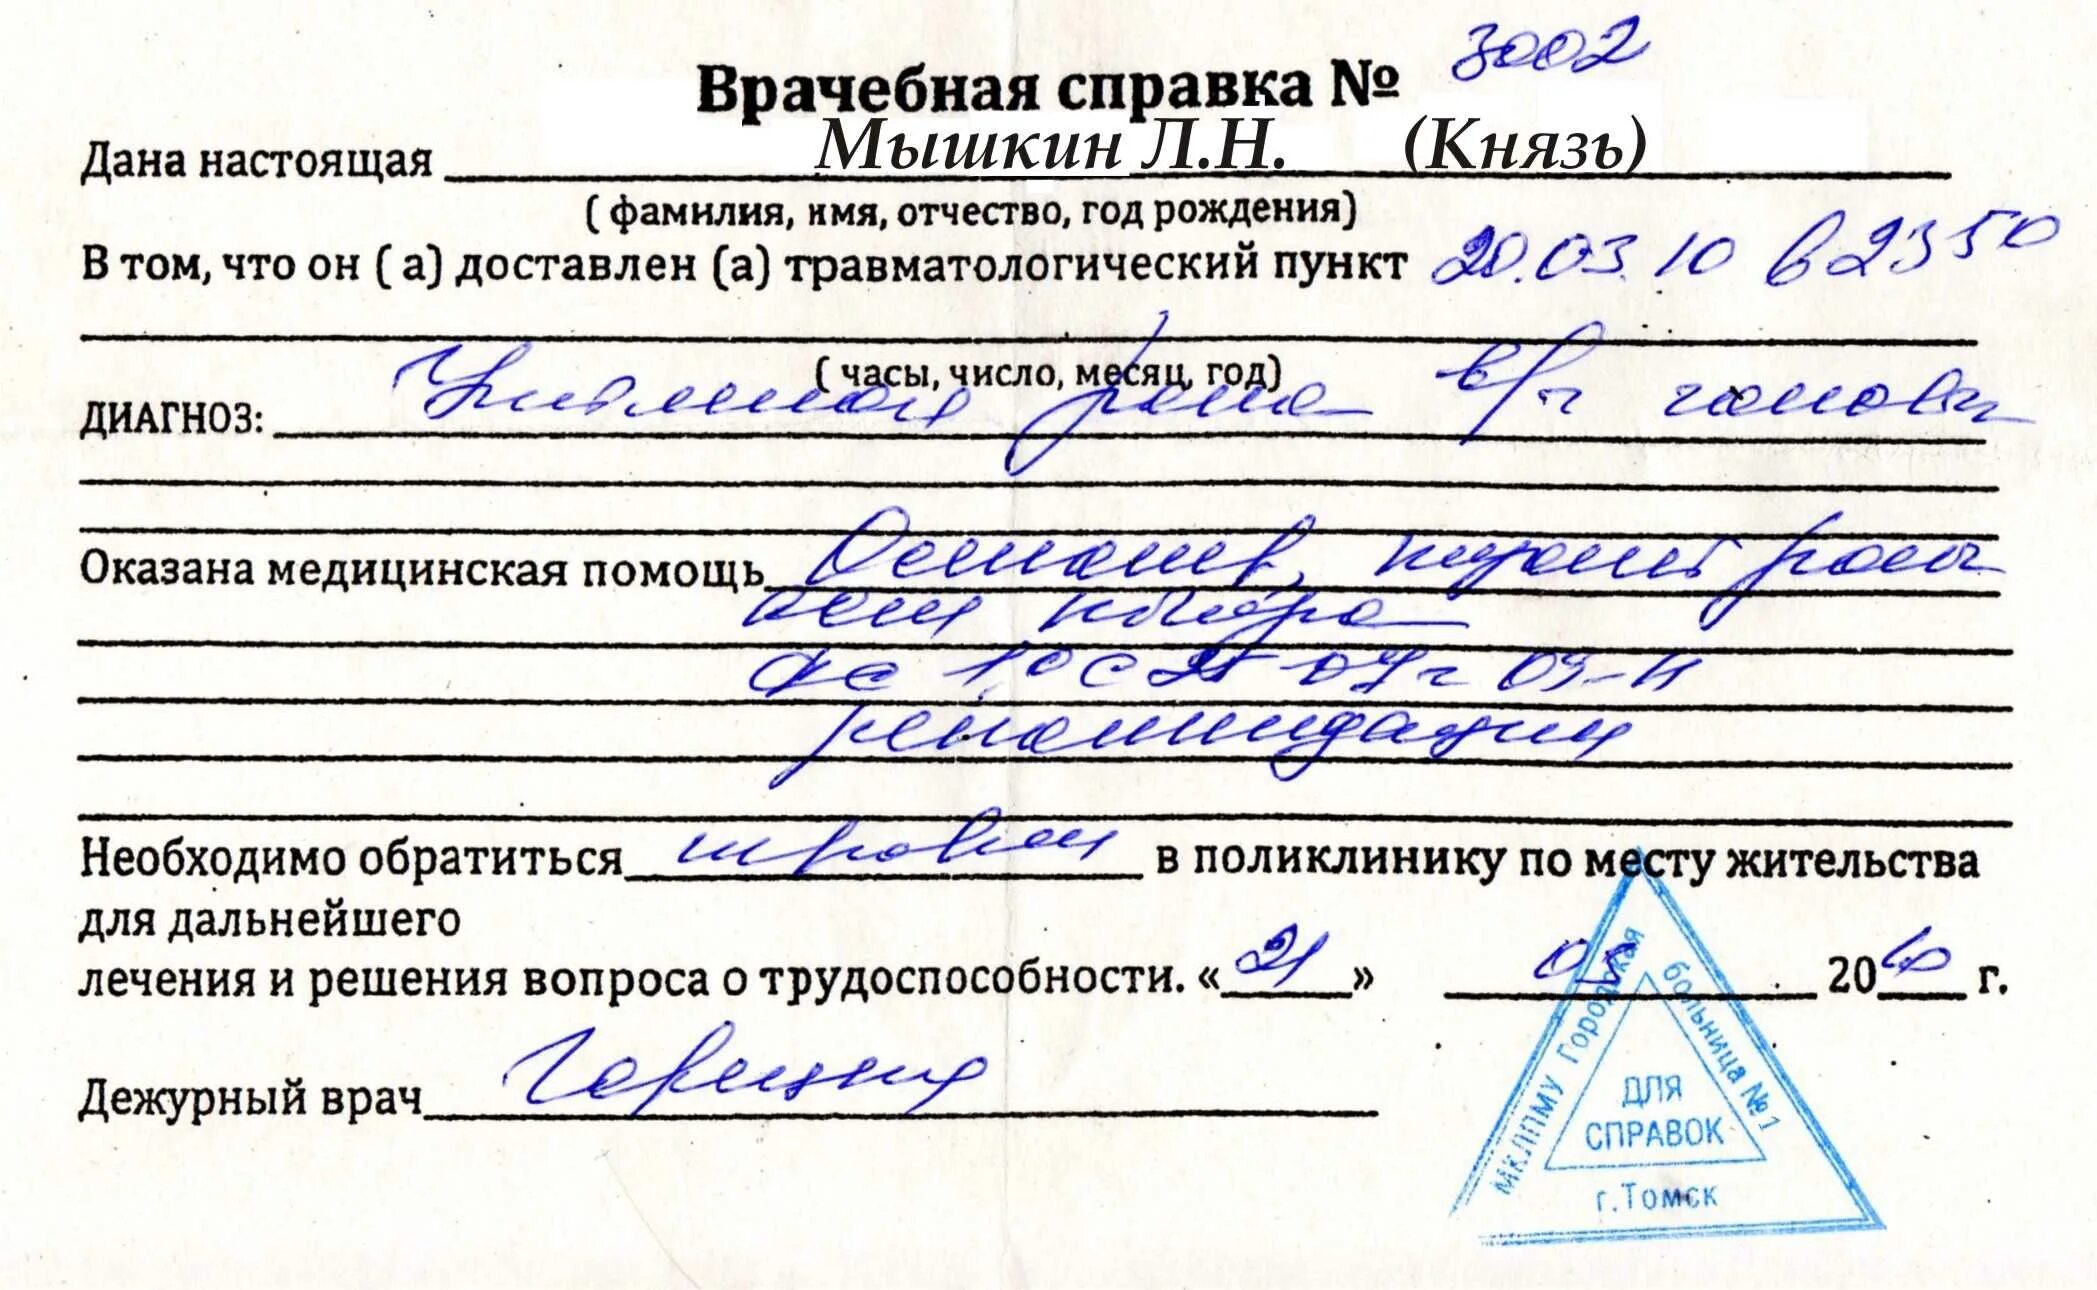 Врачебная справка № 3002
Дана настоящая Мышкин Л.Н. (Князь)
( фамилия, имя, отчество, год рождения)
В том, что он ( а) доставлен (а) травматологический пункт 20.03.10 в 23 50
( часы, число, месяц, год)
ДИАГНОЗ: рана в/ч головы
Оказана медицинская помощь Осмотр, раны
рекомендации
Необходимо обратиться в поликлинику по месту жительства
для дальнейшего
лечения и решения вопроса о трудоспособности. «21» 03 2010 г.
Дежурный врач
МКЛПМУ Городская больница №1
ДЛЯ
СПРАВОК
г.Томск